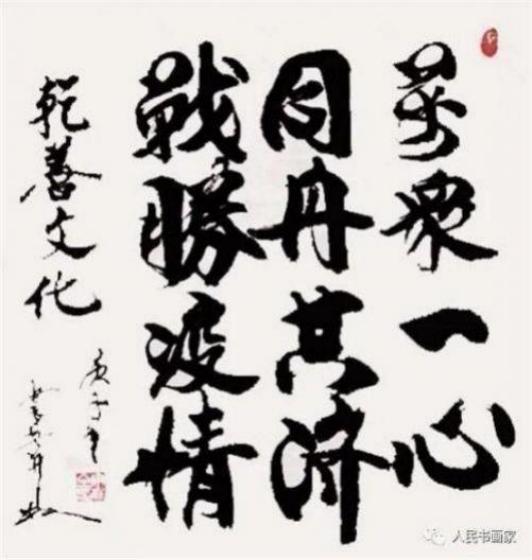 萬眾一心
同舟共济
戰勝疫情
乾善文化
庚子
人民书画家